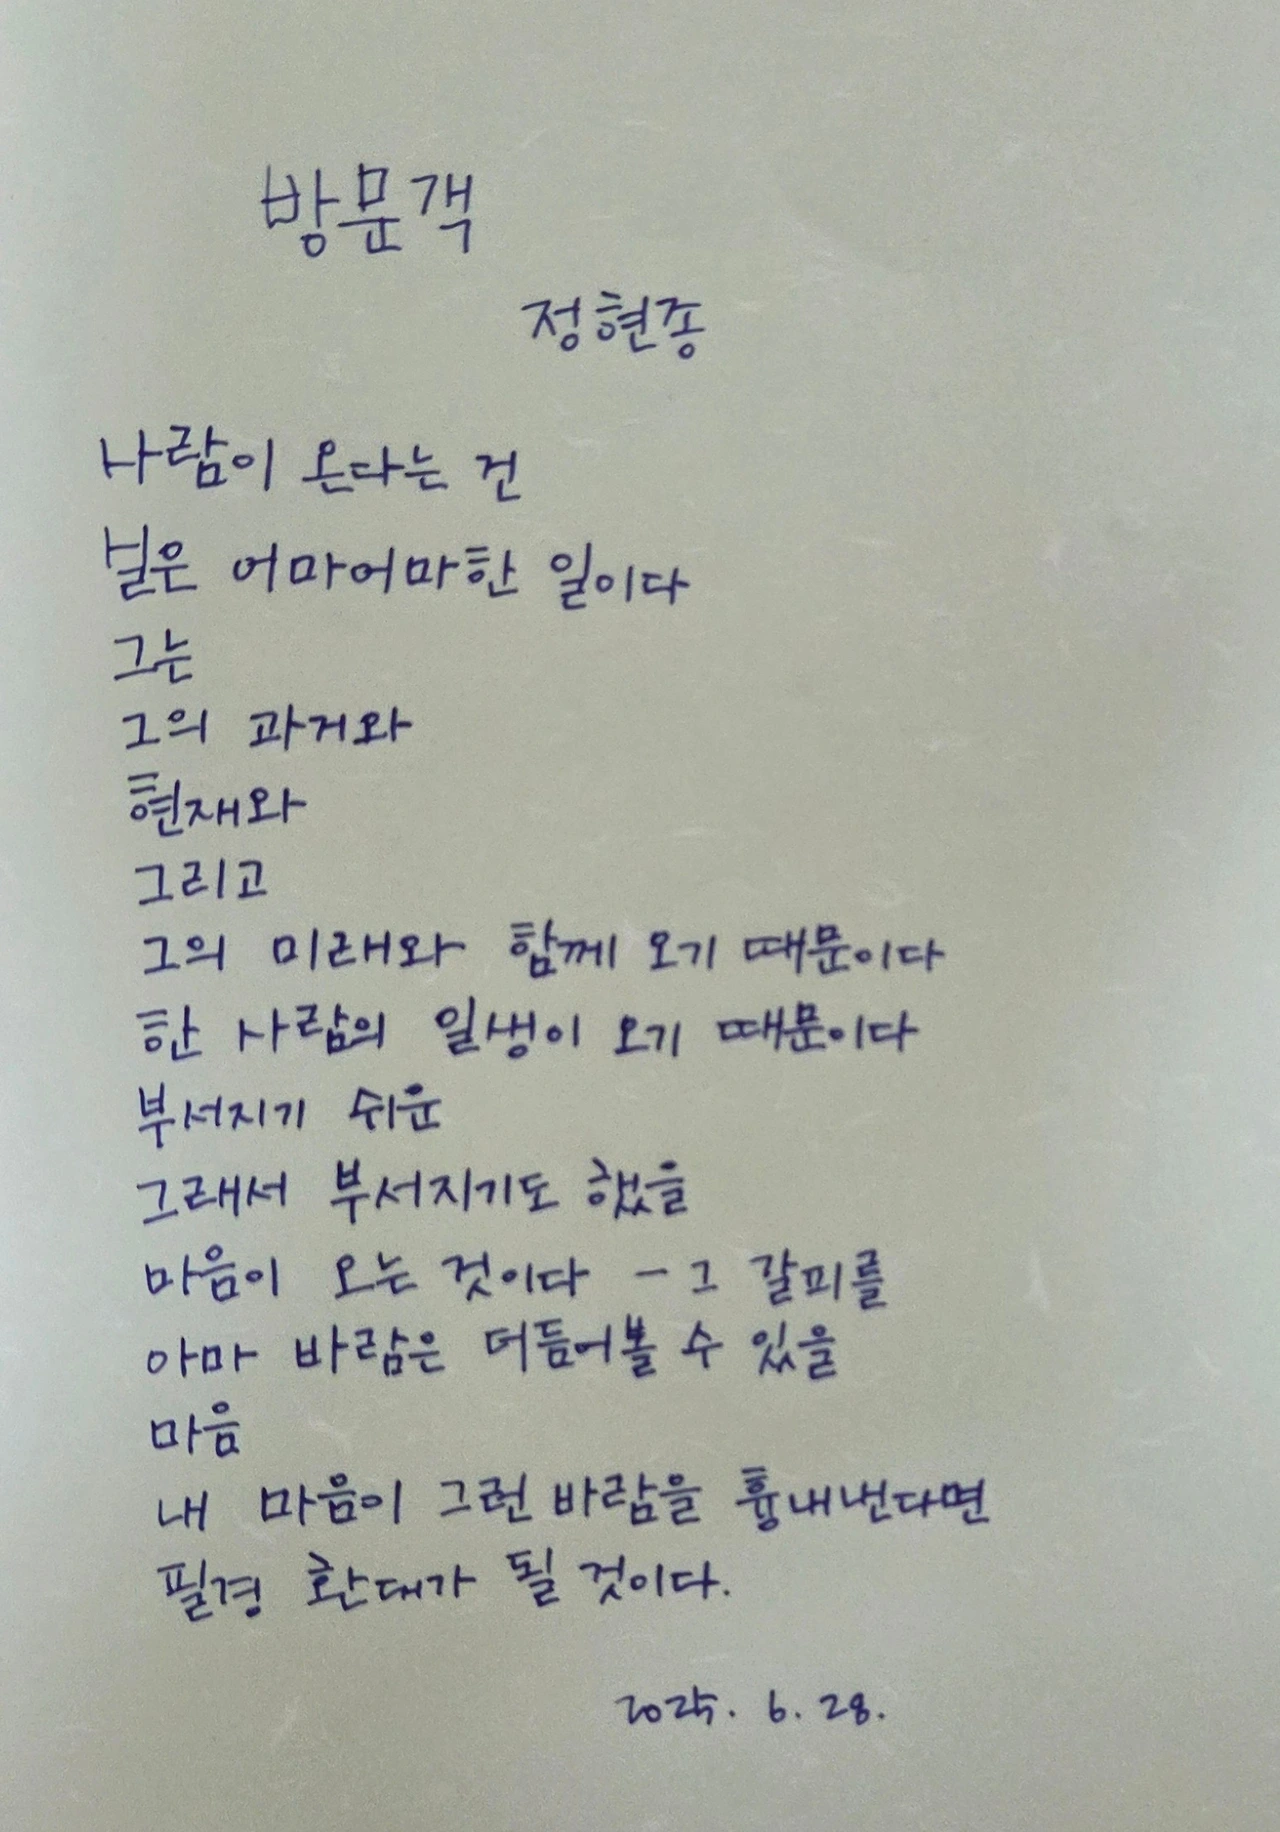 방문객
정현종
사람이 온다는 건
실은 어마어마한 일이다
그는
그의 과거와
현재와
그리고
그의 미래와 함께 오기 때문이다
한 사람의 일생이 오기 때문이다
부서지기 쉬운
그래서 부서지기도 했을
마음이 오는 것이다 - 그 갈피를
아마 바람은 더듬어볼 수 있을
마음
내 마음이 그런 바람을 흉내낸다면
필경 환대가 될 것이다.
2025. 6. 28.